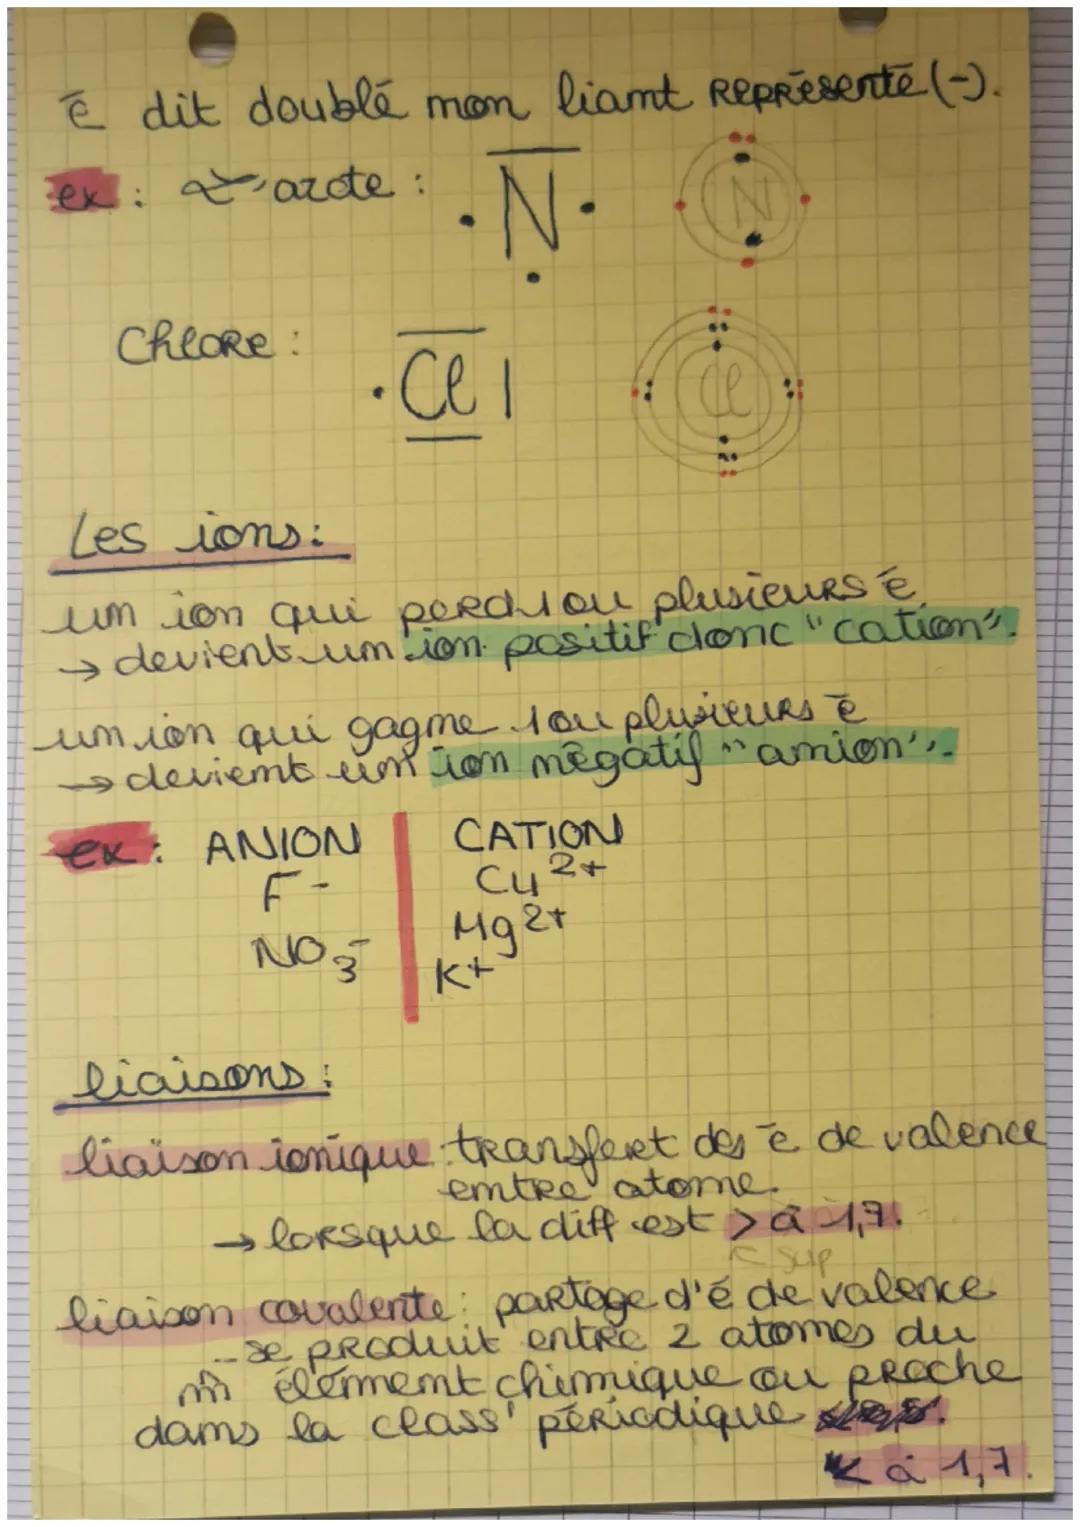 ē dit doublé non liant représenté (-).
ex : L'azote : N N
Chlore : Cl Cl
Les ions :
un ion qui perd 1 ou plusieurs ē
→ devient un ion positif donc "cation".
un ion qui gagne 1 ou plusieurs ē
→ devient un ion négatif "anion".
ex : ANION CATION
F⁻ Cu²⁺
NO₃⁻ Mg²⁺
K⁺
liaisons :
liaison ionique : transfert des ē de valence
entre atome.
→ lorsque la diff est > à 1,7.
sup
liaison covalente : partage d'ē de valence
se produit entre 2 atomes du
m̂ élément chimique ou proche
dans la class' périodique
< à 1,7.